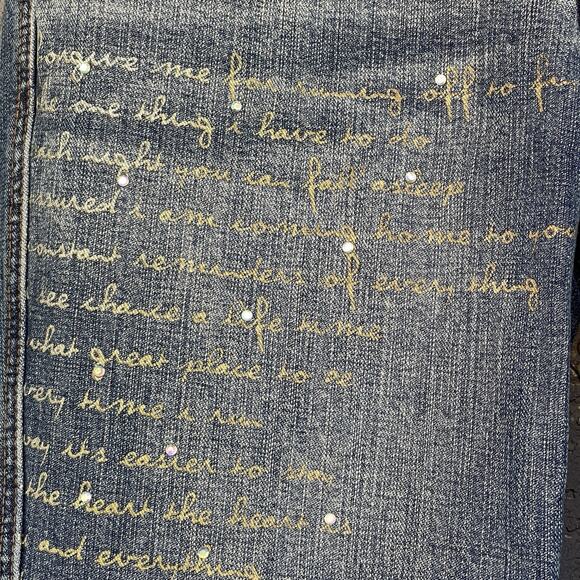 forgive me for running off to fin
the one thing i have to do
each night you can fall asleep
assured i am coming home to you
constant reminders of everything
see chance a life time
what great place to be
every time i run
way it's easier to stay
the heart the heart is
and everything